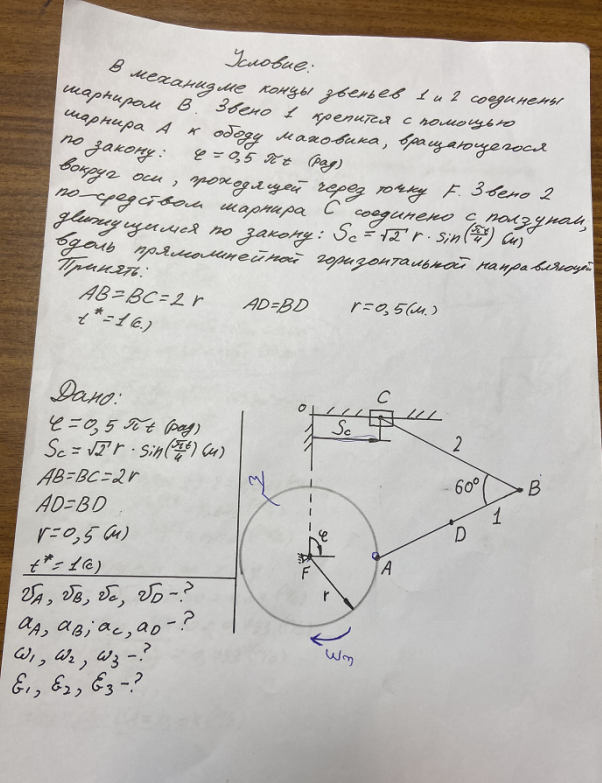 Условие:
В механизме концы звеньев 1 и 2 соединены
шарниром В. Звено 1 крепится с помощью
шарнира А к ободу маховика, вращающегося
по закону: φ = 0,5 πt (рад)
вокруг оси, проходящей через точку F. Звено 2
по-средством шарнира С соединено с ползуном,
движущимся по закону: Sc = √2 r · sin(πt/4) (м)
вдоль прямолинейной горизонтальной направляющей
Принять:
AB = BC = 2 r AD = BD r = 0,5 (м.)
t* = 1 (с.)
Дано:
φ = 0,5 πt (рад)
Sc = √2 r · sin(πt/4) (м)
AB = BC = 2r
AD = BD
r = 0,5 (м)
t* = 1 (с)
υA, υB, υc, υD - ?
aA, aB; ac, aD - ?
ω1, ω2, ω3 - ?
ε1, ε2, ε3 - ?
O
C
Sc
2
60°
B
1
D
3
φ
F
r
A
ω3